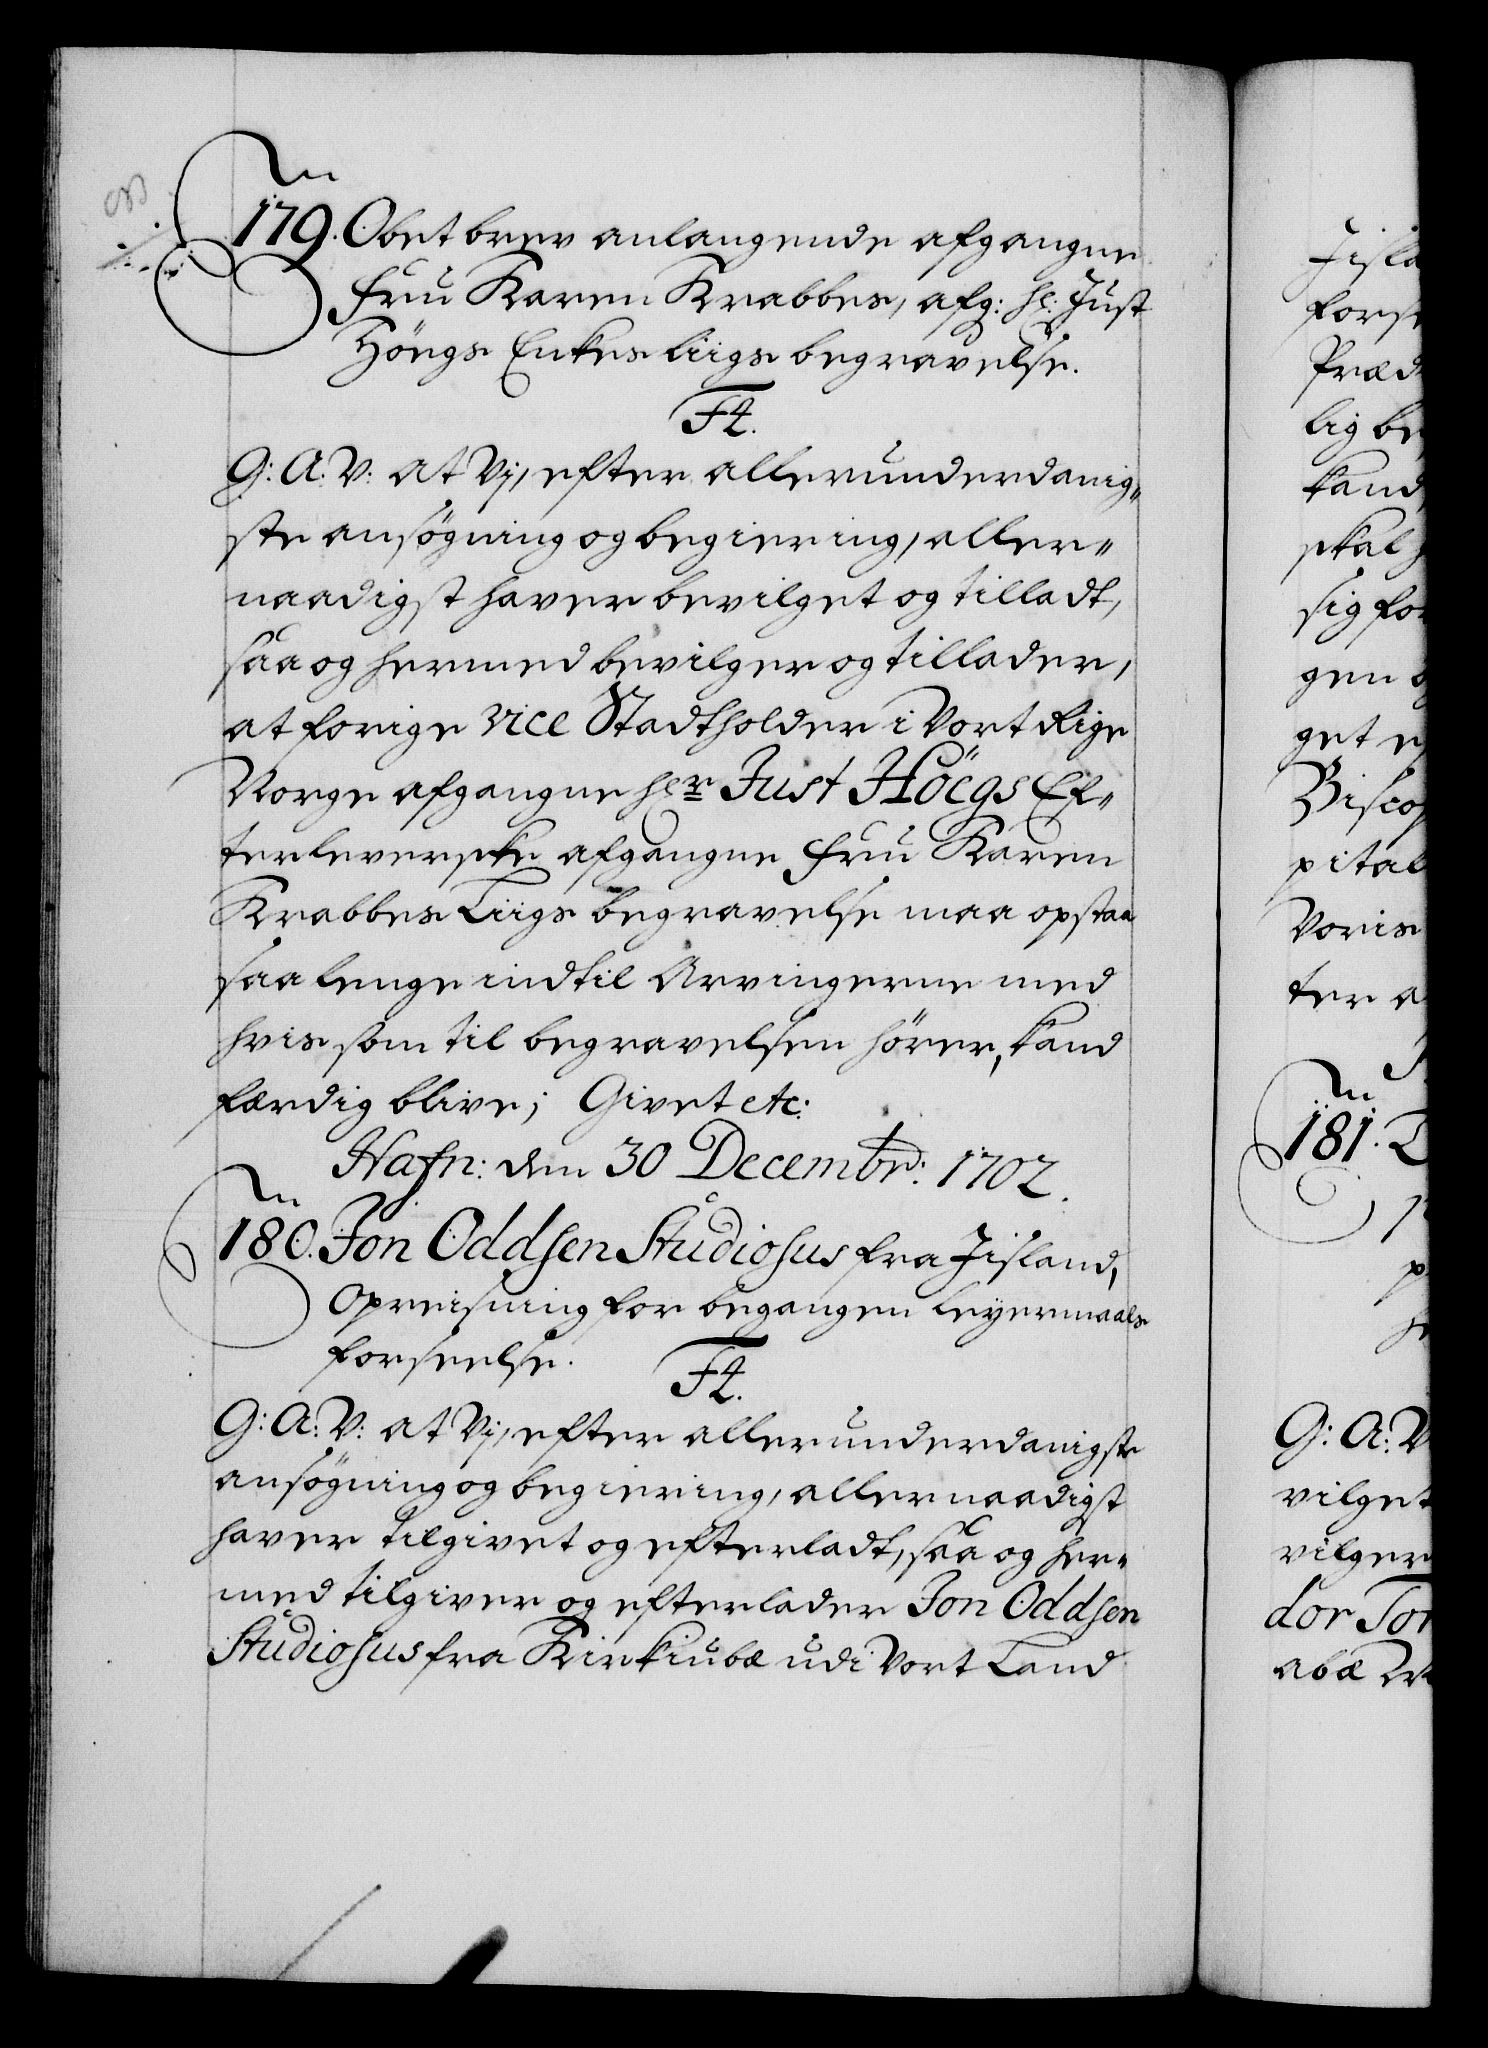 179. Obet brev anlangende afgangne
Fru Karen Krabbes, afg: hl: Just
Höegs Enkes liigs begravelse.
F4.
G: A: V: at Vj, efter allerunderdanig„
ste ansögning og begiering, aller„
naadigst haver bevilget og tilladt,
saa og hermed bevilger og tillader,
at forige vice Stadtholder i Vort Rige
Norge afgangne hlr Just Höegs Ef„
terleverske afgangne Fru Karen
Krabbes Liigs begravelse maa opstaa
saa lenge indtil Arvingerne med
hvis som til begravelsen hörer, kand
færdig blive; Givet etc:
Hafn: den 30 Decembr: 1702.
180. Jon Oddsen Studiosus fra Jisland,
Opreisning for begangen leyermaals
forseelse.
F4.
G: A: V: at Vj, efter allerunderdanigste
ansögning og begiering, allernaadigst
haver tilgivet og efterladt, saa og her„
med tilgiver og efterlader Jon Oddsen
Studiosus fra Kirkiubæ udi Vort Land
Jisla
forse
Præd
lig be
kand
skal
sig for
gen
get
Biscop
pital
Voris
ter a
181.
G: A: V
vilget
vilger
dor Tor
abæ